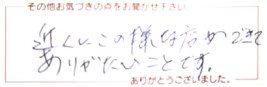 その他お気づきの点をお聞かせ下さい
近くにこの様な店ができて
ありがたいことです。
ありがとうございました。